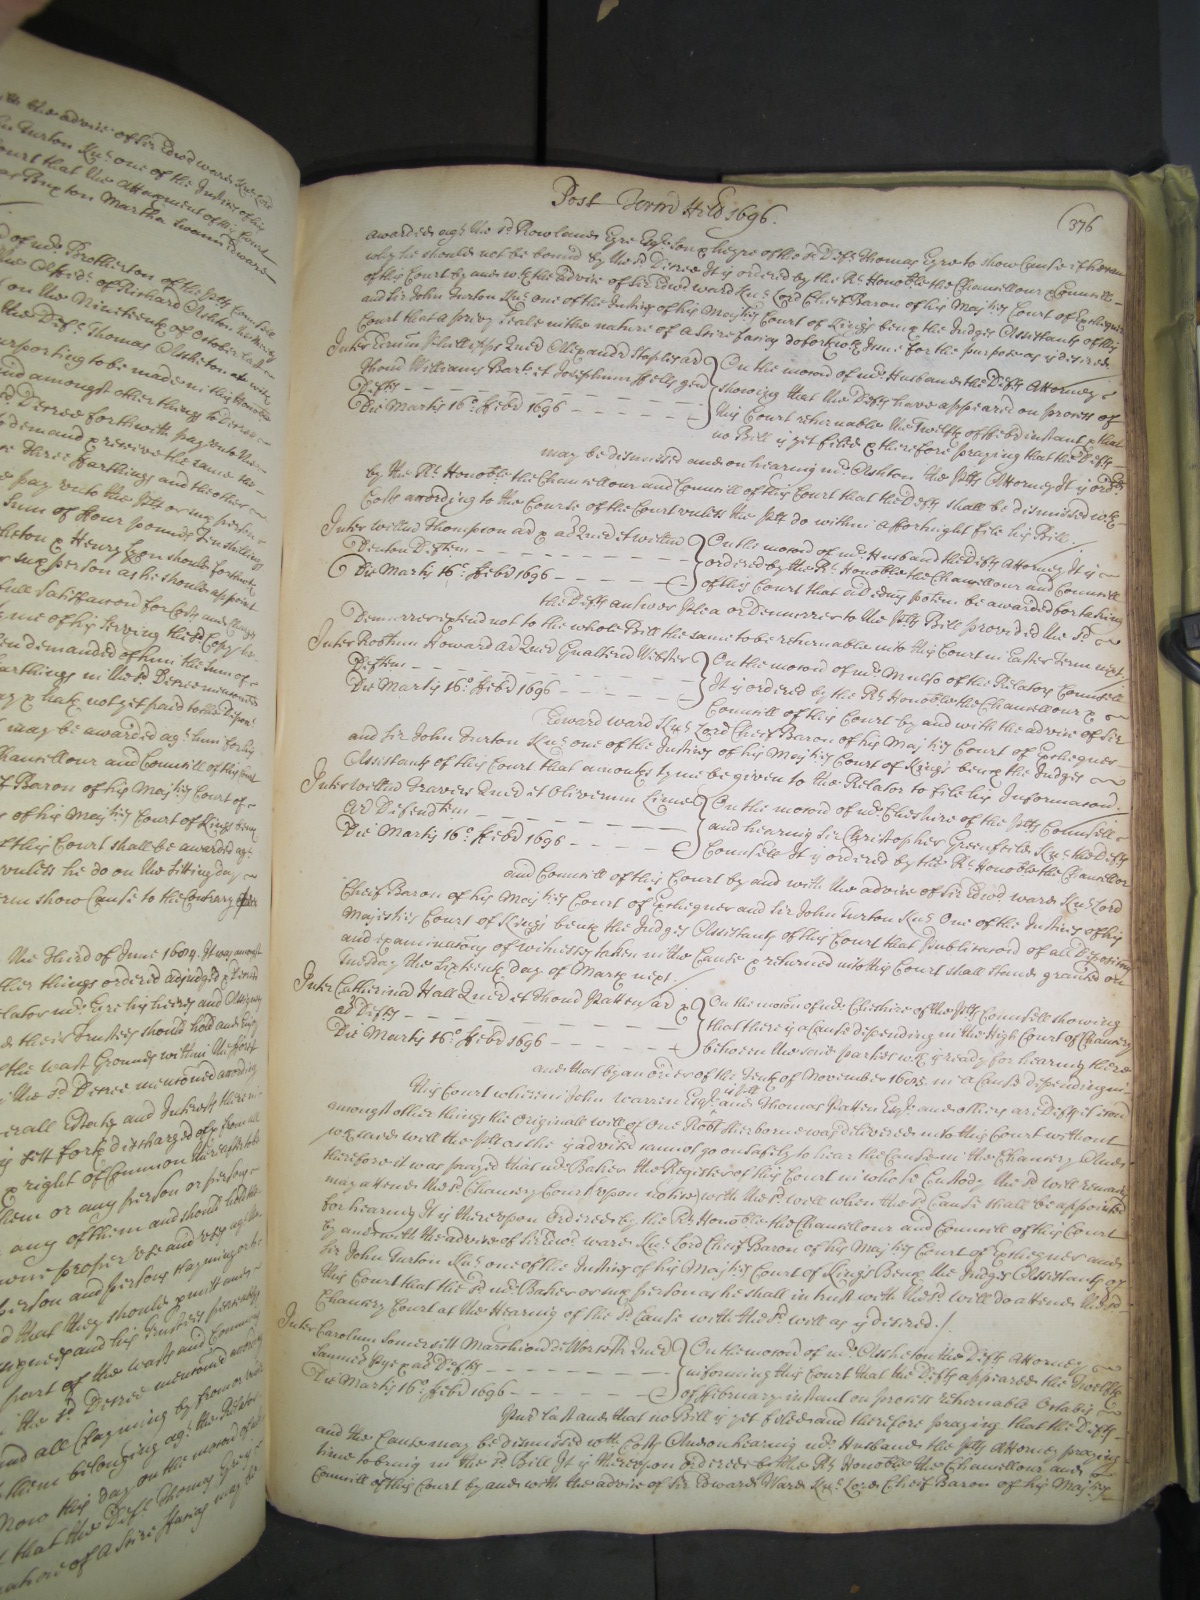 with the advice of Sir Edwd ward Knt Lord
Turton Knt one of the Justices of his
Court that the Attachment of this Court
Martha Swann Edward
of mr Brotherton of the plts Councell
the Affidt of Richard Ashton
on the Nineteenth of October last
the Deft Thomas Asheton
purporting to be made in this Honoble
and amongst other things to Decree
Decree forthwith pay unto the
demand & receive the same the
three farthings and the other
pay unto the plts or any person
Sume of ffour pounds Tenn shillings
& Henry Eyon should forthwith
or such person as he should appoint
full satisfaccon for Costs and Charges
time of his serving the sd Copy he
demanded of him the Sum of
farthings in the sd Decree menconed
& hath not yet paid to the
may be awarded agt him for his
Chancellour and Councill of this Court
Baron of his Majties Court of
of his Majties Court of Kings bench
this Court shall be awarded agt
unless he do on the sitting day
show Cause to the Contrary
the Third of June 1604 It was amongst
other things ordered adjudged & Decreed
mr Eyre his heires and Assignes
their Trustees should hold and enjoy
the wast Grounds within the fforest
the sd Decree menconed according
Estates and Interests therein
sett forth discharged of & from all
& right of Common
them or any person or persons
any of them and should
owne proper use and uses agt the
person and persons clayming
that they should permitt and
and his Trustees peaceably
part of the wasts and Commons
the sd Decree menconed according
and all Clayming by from or under
them belonging agt the Relator
Now this day on the mocon of
that the Deft Thomas Eyre is
nature of a Scire ffacias may be
Post Termd Hild 1696.
(376
awarded agt the sd Rowland Eyre Esqr son & heyre of the sd Deft Thomas Eyre to show Cause if he can
why he should not be bound by the sd Decree It is ordered by the Rt Honoble the Chancellour & Councill
of this Court by and wth the advice of Sir Edward ward Knt Lord Cheif Baron of his Majties Court of Exchequer
and Sir John Turton Knt one of the Justices of his Majties Court of Kings bench the Judges Assistants of this
Court that a privy Seale in the nature of a Scire facias do forthwith Issue for the purpose as is desired
Inter Erasm Phillipps Quer Alexandr Stapley ar
Thomd Williams Bart et Josephum ffells gen
Defts
Die Martis 16o. ffebr 1696
On the mocon of mr Husband the Defts Attorney
showing that the Defts have appeared on process of
this Court returnable the Twelfth of ffebr instant & that
no Bill is yet filed & therefore praying that the Defts
may be dismissed and on hearing mr Ashton the plts Attorney It is ordrd
by the Rt Honoble the Chancellour and Councill of this Court that the Defts shall be dismissed with
Costs according to the Course of the Court unless the plt do within a ffortnight file his Bill./
Inter willm Thompson ar & ad Quer et willm
Denton Deftem
Die Martis 16o. ffebr 1696
On the mocon of mr Husband the Defts Attorney It is
ordered by the Rt Honoble the Chancellour and Councill
of this Court that a Dedimus potem be awarded for taking
the Defts answer Plea or Demurrer to the plts Bill provided the sd
Demurrer extend not to the whole Bill the same to be returnable into this Court in Easter Term next/
Inter Robtum Howard ar Quer Gualterum Webster
Deftem
Die Martis 16o. ffebr 1696
On the mocon of mr Mulso of the Relators Councell
It is ordered by the Rt Honoble the Chancellour &
Councill of this Court by and with the advice of Sir
Edward ward Knt Lord Cheif Baron of his Majties Court of Exchequer
and Sir John Turton Knt one of the Justices of his Majties Court of Kings bench the Judges
Assistants of this Court that a months tyme be given to the Relator to file his Informacon.
Inter willm Travers Quer et Oliverum Limes
Ar Defendtem
Die Martis 16o. ffebr 1696
On the mocon of mr Cheshire of the plts Councell
and hearing Sir Christopher Greenfeild Knt the Defts
Councell It is ordered by the Rt Honoble the Chancellor
and Councill of this Court by and with the advice of Sir Edwd ward Knt Lord
Cheif Baron of his Majties Court of Exchequer and Sir John Turton Knt One of the Justices of his
Majesties Court of Kings bench the Judges Assistants of this Court that Publicacon of all Deposicons
and examinacons of witnesses taken in the Cause & returned into this Court shall stand granted on
Tuesday the Sixteenth day of March next/
Inter Catherinam Hall Quer et Thomd Patten ar &
ad Defts
Die Martis 16o. ffebr 1696
On the mocon of mr Cheshire of the plts Councell showing
that there is a Cause depending in the High Court of Chancery
between the same parties wch is ready for hearing there
and that by an order of the Tenth of November 1695 in a Cause depending in
this Court wherein John Warren Esqr is plt and Thomas Patten Esqr and others are Defts it is ord
amongst other things the Originall will of One Robt Sherborne was delivered into this Court without
wch said will the plt as she is advised cannot go on safely to hear the Cause in the Chancery Court
therefore it was prayed that mr Baker the Register of this Court in whose Custody the sd will remains
may attend the sd Chancery Court upon notice with the sd will when the sd Cause shall be appointed
for hearing It is thereupon Ordered by the Rt Honoble the Chancellour and Councill of this Court
by and with the advice of Sir Edwd ward Knt Lord Cheif Baron of his Majties Court of Exchequer and
Sir John Turton Knt one of the Justices of his Majties Court of Kings Bench the Judges Assistants of
this Court that the sd mr Baker or such person as he shall intrust with the sd will do attend the sd
Chancery Court at the Hearing of the sd Cause with the sd will as is desired./
Inter Carolum Somersitt Marchion de Worcestr Quer
Samuel Pye & ad Defts
Die Martis 16o ffebr 1696
On the mocon of mr Assheton the Defts Attorney
informing this Court that the Defts appeared the Twelfth
of ffebruary instant on process returnable Octabis
Pur last and that no Bill is yet filed and therefore praying that the Defts
and the Cause may be dismissed wth Costs And on hearing mr Husband the plts Attorney praying
time to bring in the sd Bill It is thereupon ordered by the Rt Honoble the Chancellour and
Councill of this Court by and with the advice of Sir Edward Ward Knt Lord Cheif Baron of his Majties